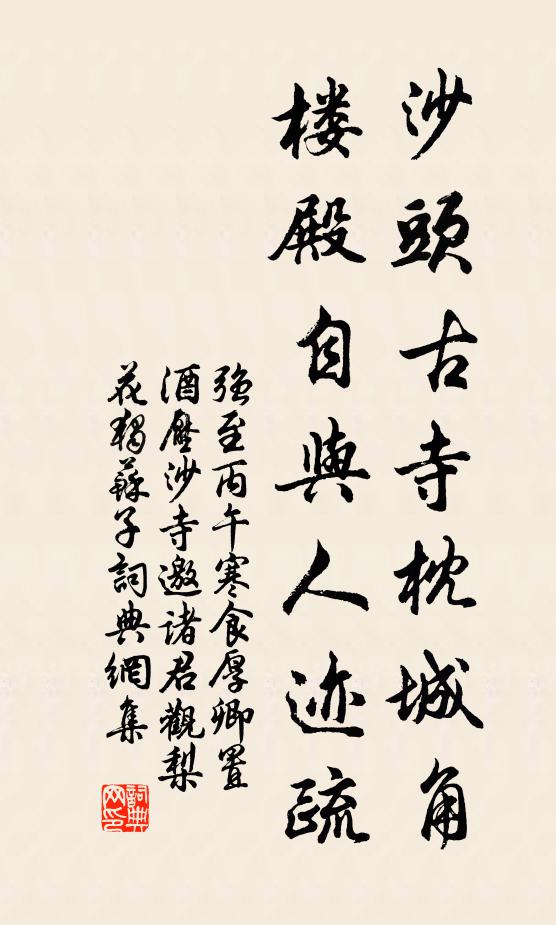 沙頭古寺枕城角
楼殿自與人迹疏
强至丙午寒食厚卿置
酒壓沙寺邀諸君觀梨
花獨蘇子詞典網集
詞典
网印